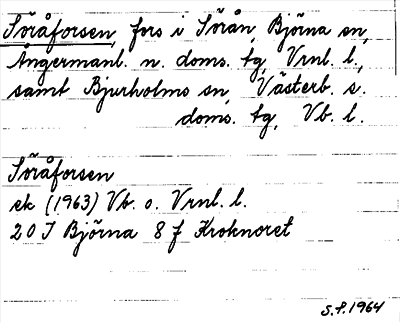 Söråforsen, fors i Sörån, Björna sn,
Ångermanl. n. doms. tg, Vrnl. l.,
samt Bjurholms sn, Västerb. s.
doms. tg, Vb. l.
Söråforsen
ek (1963) Vb. o. Vrnl. l.
20 J Björna 8 f Kroknoret
S.P. 1964